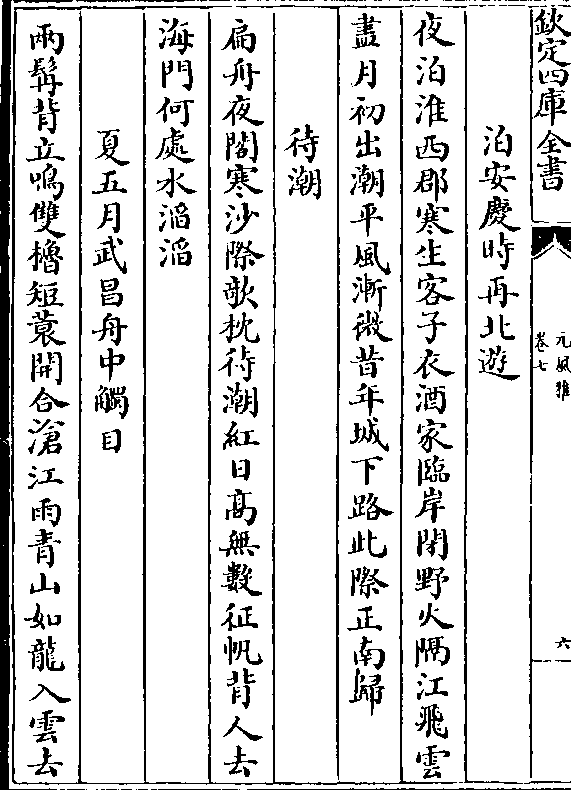 欽定四庫全書
元風雅
卷七
六
泊安慶時再北遊
夜泊淮西郡寒生客子衣酒家臨岸閉野火隔江飛雲
盡月初出潮平風漸微昔年城下路此際正南歸
待潮
扁舟夜閣寒沙際欹枕待潮紅日髙無數征帆背人去
海門何處水滔滔
夏五月武昌舟中觸目
兩髯背立鳴雙櫓短蓑開合滄江雨青山如龍入雲去